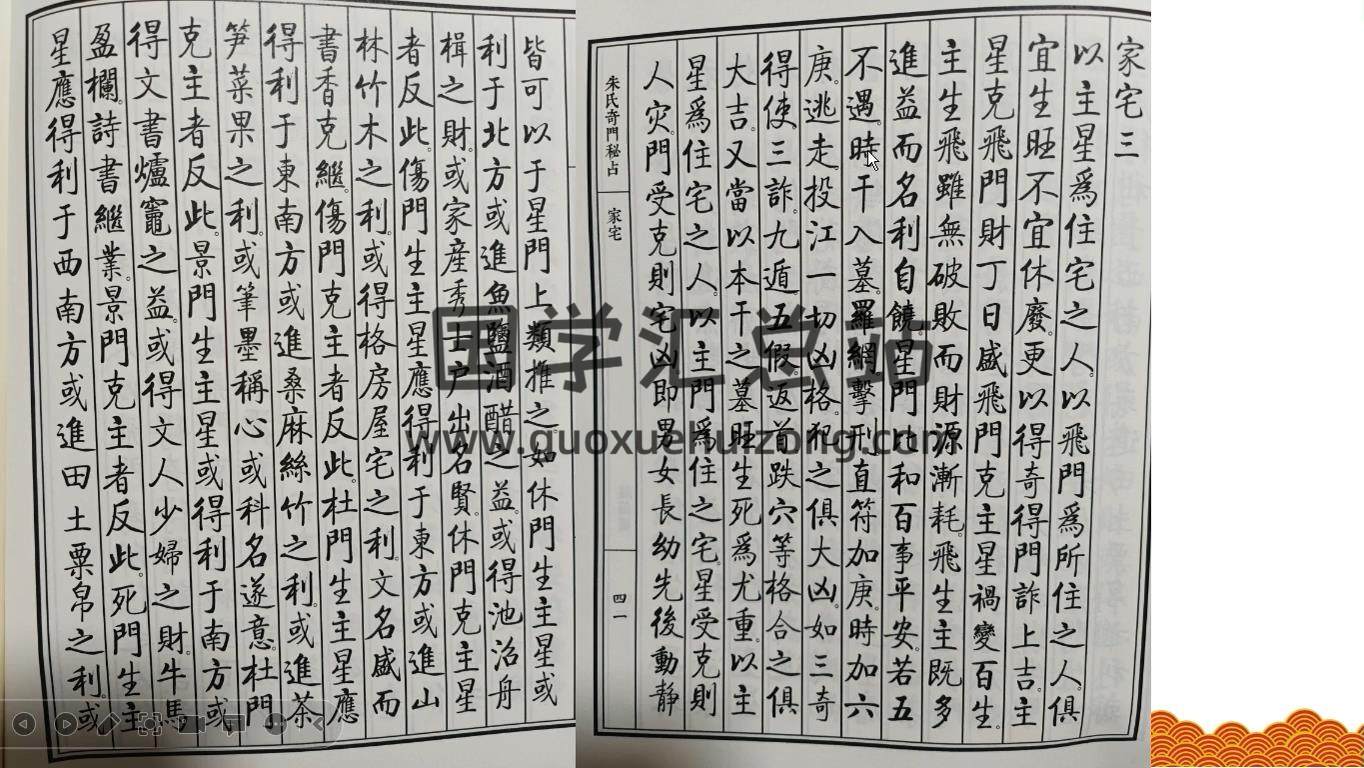 家宅三
以主星為住宅之人以飛門為所住之人俱
宜生旺不宜休廢更以得奇得門詐上吉主
星克飛門財丁日盛飛門克主星禍變百生
主生飛雖無破敗而財源漸耗飛生主既多
進益而名利自饒星門比和百事平安若五
不遇時干入墓羅網擊刑直符加庚時加六
庚逃走投江一切凶格犯之俱大凶如三奇
得使三詐九遁五假返首跌穴等格合之俱
大吉又當以本干之墓旺生死為尤重以主
星為住宅之人以主門為住之宅星受克則
人灾門受克則宅凶即男女長幼先後動静
朱氏奇門秘占
家宅
四一
皆可以于星門上類推之如休門生主星或
利于北方或進魚鹽酒醋之益或得池沼舟
楫之財或家産秀士户出名賢休門克主星
者反此傷門生主星應得利于東方或進山
林竹木之利或得格房屋宅之利文名盛而
書香克繼傷門克主者反此杜門生主星應
得利于東南方或進桑麻絲竹之利或進茶
笋菜果之利或筆墨稱心或科名遂意杜門
克主者反此景門生主星或得利于南方或
得文書爐竈之益或得文人少婦之財牛馬
盈欄詩書繼業景門克主者反此死門生主
星應得利于西南方或進田土粟帛之利或
国学汇总站
www.guoxuehuizong.com